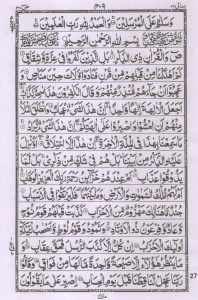 ۴۰۹
وَسَلٰمٌ عَلَى الْمُرْسَلِيْنَ وَالْحَمْدُ لِلّٰهِ رَبِّ الْعٰلَمِيْنَ
بِسْمِ اللّٰهِ الرَّحْمٰنِ الرَّحِيْمِ
صٓ وَالْقُرْاٰنِ ذِى الذِّكْرِ بَلِ الَّذِيْنَ كَفَرُوْا فِىْ عِزَّةٍ وَّشِقَاقٍ
كَمْ اَهْلَكْنَا مِنْ قَبْلِهِمْ مِّنْ قَرْنٍ فَنَادَوْا وَّلَاتَ حِيْنَ مَنَاصٍ وَ
عَجِبُوْٓا اَنْ جَآءَهُمْ مُّنْذِرٌ مِّنْهُمْ وَقَالَ الْكٰفِرُوْنَ هٰذَا سٰحِرٌ كَذَّابٌ
اَجَعَلَ الْاٰلِهَةَ اِلٰهًا وَّاحِدًا اِنَّ هٰذَا لَشَىْءٌ عُجَابٌ وَانْطَلَقَ الْمَلَاُ
مِنْهُمْ اَنِ امْشُوْا وَاصْبِرُوْا عَلٰٓى اٰلِهَتِكُمْ اِنَّ هٰذَا لَشَىْءٌ يُّرَادُ
مَا سَمِعْنَا بِهٰذَا فِى الْمِلَّةِ الْاٰخِرَةِ اِنْ هٰذَآ اِلَّا اخْتِلَاقٌ ءَاُنْزِلَ
عَلَيْهِ الذِّكْرُ مِنْۢ بَيْنِنَا بَلْ هُمْ فِىْ شَكٍّ مِّنْ ذِكْرِىْ بَلْ لَّمَّا
يَذُوْقُوْا عَذَابِ اَمْ عِنْدَهُمْ خَزَآئِنُ رَحْمَةِ رَبِّكَ الْعَزِيْزِ الْوَهَّابِ اَمْ
لَهُمْ مُّلْكُ السَّمٰوٰتِ وَالْاَرْضِ وَمَا بَيْنَهُمَا فَلْيَرْتَقُوْا فِى الْاَسْبَابِ
جُنْدٌ مَّا هُنَالِكَ مَهْزُوْمٌ مِّنَ الْاَحْزَابِ كَذَّبَتْ قَبْلَهُمْ قَوْمُ نُوْحٍ وَّ
عَادٌ وَّفِرْعَوْنُ ذُو الْاَوْتَادِ وَثَمُوْدُ وَقَوْمُ لُوْطٍ وَّاَصْحٰبُ لْئَيْكَةِ
اُولٰٓئِكَ الْاَحْزَابُ اِنْ كُلٌّ اِلَّا كَذَّبَ الرُّسُلَ فَحَقَّ عِقَابِ وَ
مَا يَنْظُرُ هٰٓؤُلَآءِ اِلَّا صَيْحَةً وَّاحِدَةً مَّا لَهَا مِنْ فَوَاقٍ وَقَالُوْا
رَبَّنَا عَجِّلْ لَّنَا قِطَّنَا قَبْلَ يَوْمِ الْحِسَابِ اِصْبِرْ عَلٰى مَا يَقُوْلُوْنَ
27